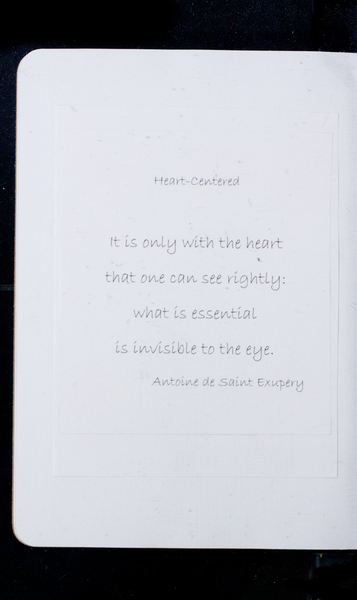 Heart-Centered
It is only with the heart
that one can see rightly:
what is essential
is invisible to the eye.
Antoine de Saint Exupery